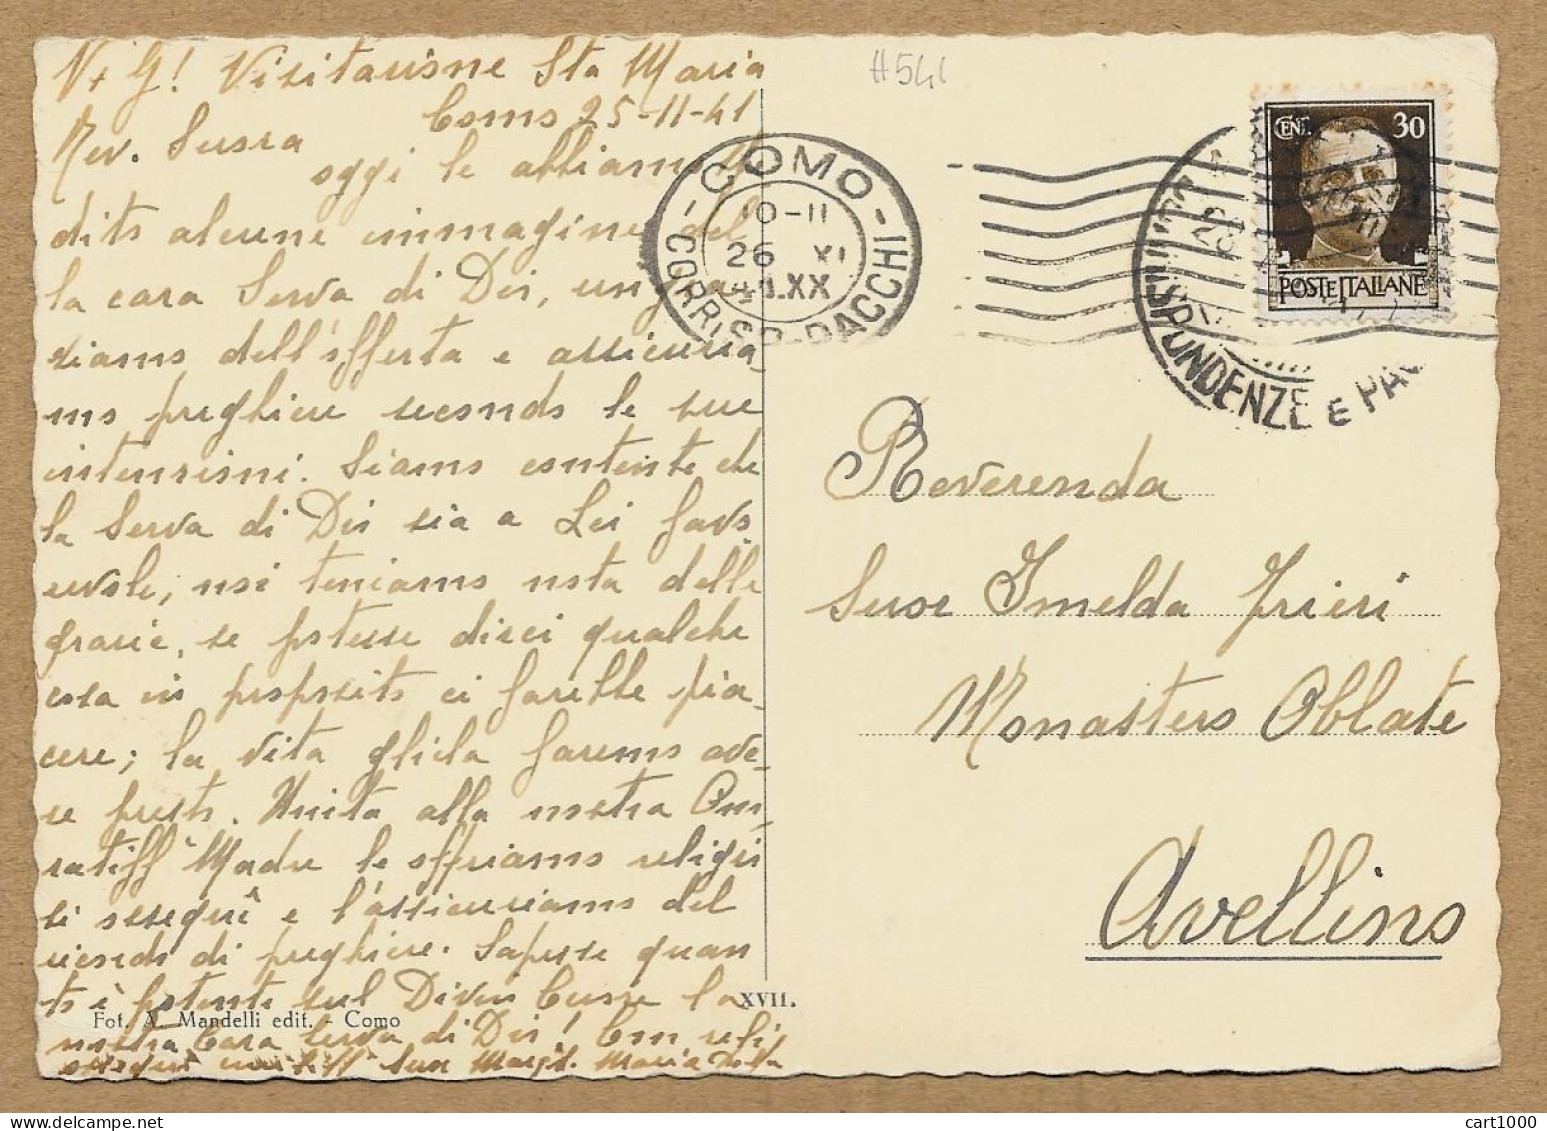 V + G! Visitazione Sta Maria
Como 25-11-41
Rev. Suora
oggi le abbiamo
dito alcune immagine del
la cara Serva di Dio,
ziamo dell'offerta e assicuria
mo preghiere secondo le sue
intenzioni. Siamo contente che
la Serva di Dio sia a Lei favo
revole, noi teniamo nota delle
grazie, se potesse dirci qualche
cosa in proposito ci farebbe pia-
cere; la vita gliela faremo ave-
re presto. Unita alla nostra On
ratiss Madre le offriamo religio
si ossequi e l'assicuriamo del
ricordo di preghiere. Sapesse quan
to è potente sul Divin Cuore la
nostra Cara Serva di Dio! Con religi
ossequi Suor Maria
XVII.
Fot. A. Mandelli edit. - Como
#544
COMO
CORRISP. PACCHI
10-11
26 XI
41.XX
CENT. 30
POSTE ITALIANE
SPONDENZE E PAC
Reverenda
Suor Imelda Frieri
Monastero Oblate
Avellino
cart1000